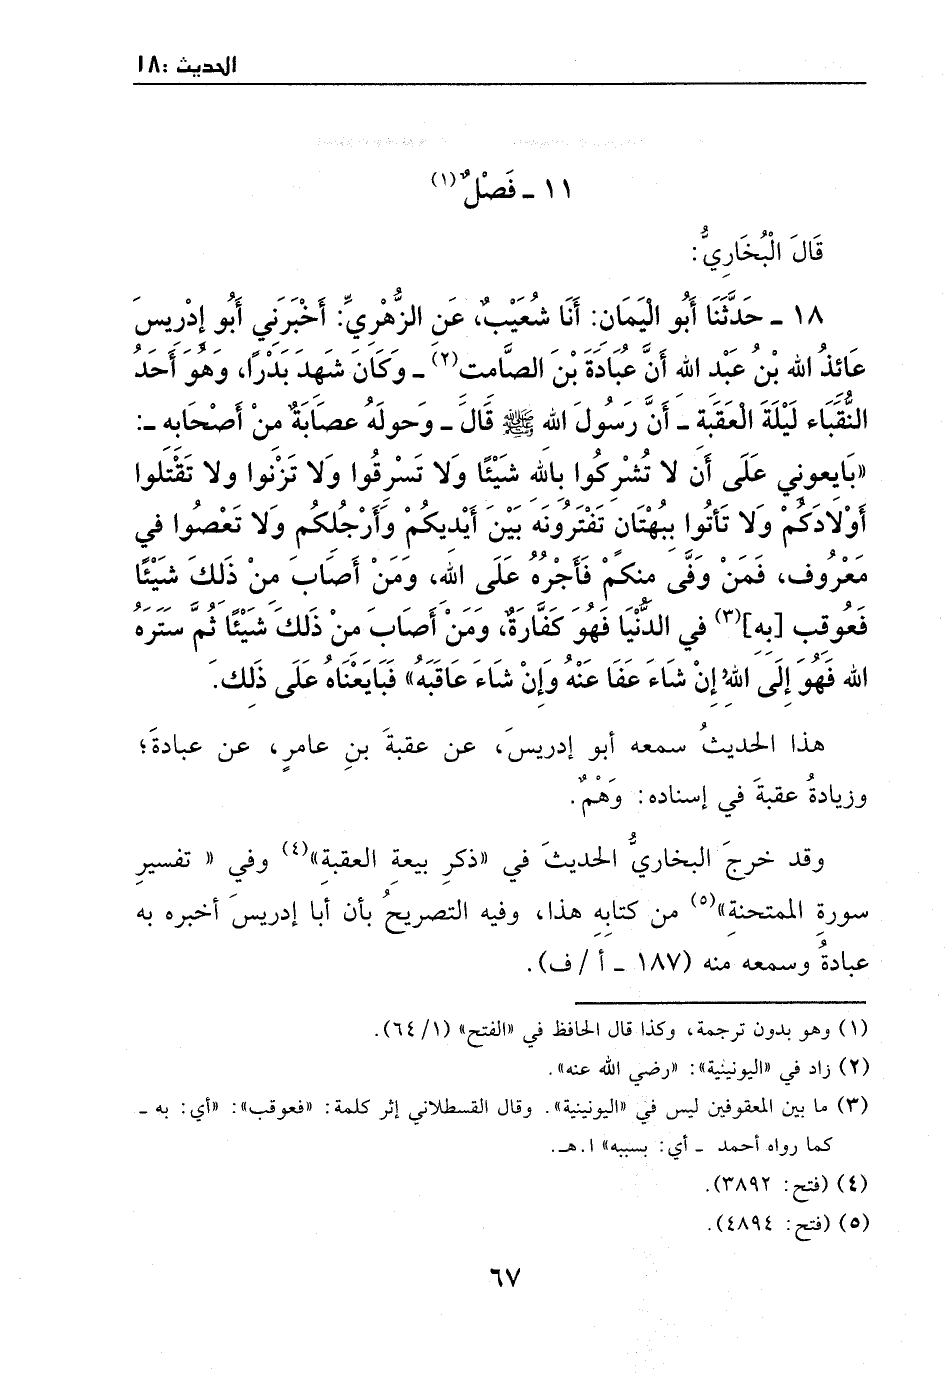 الحديث: ١٨
١١ ـ فَصْلٌ(١)
قَالَ الْبُخَارِيُّ:
١٨ ـ حَدَّثَنَا أَبُو الْيَمَانِ: أَنَا شُعَيْبٌ، عَنِ الزُّهْرِيِّ: أَخْبَرَنِي أَبُو إِدْرِيسَ
عَائِذُ اللهِ بْنُ عَبْدِ اللهِ أَنَّ عُبَادَةَ بْنَ الصَّامِتِ(٢) ـ وَكَانَ شَهِدَ بَدْرًا، وَهُوَ أَحَدُ
النُّقَبَاءِ لَيْلَةَ الْعَقَبَةِ ـ أَنَّ رَسُولَ اللهِ ﷺ قَالَ ـ وَحَولَهُ عِصَابَةٌ مِنْ أَصْحَابِهِ ـ:
«بَايِعونِي عَلَى أَن لا تُشْرِكُوا بِاللهِ شَيْئًا وَلَا تَسْرِقُوا وَلَا تَزْنُوا ولا تَقْتلوا
أَوْلَادَكُمْ وَلَا تَأتُوا بِبُهْتَانٍ تَفْتَرُونَه بَيْنَ أَيْدِيكُمْ وَأَرْجُلِكُم وَلَا تَعْصُوا فِي
مَعْرُوفٍ، فَمَنْ وَفَّى مِنكُمْ فَأَجْرُهُ عَلَى اللهِ، وَمَنْ أَصَابَ مِنْ ذَلِكَ شَيْئًا
فَعُوقِبَ [بِهِ](٣) فِي الدُّنْيَا فَهُوَ كَفَّارَةٌ، وَمَنْ أَصَابَ مِنْ ذَلِكَ شَيْئًا ثُمَّ سَتَرَهُ
اللهُ فَهُوَ إِلَى اللهِ إِنْ شَاءَ عَفَا عَنْهُ وَإِنْ شَاءَ عَاقَبَهُ» فَبَايَعْنَاهُ عَلَى ذَلِكَ.
هذا الحديثُ سمعه أبو إدريسَ، عن عقبةَ بنِ عامرٍ، عن عبادةَ؛
وزيادةُ عقبةَ في إسناده: وَهْمٌ.
وقد خرجَ البخاريُّ الحديثَ في «ذكرِ بيعةِ العقبةِ»(٤) وفي « تفسيرِ
سورةِ الممتحنةِ»(٥) من كتابِهِ هذا، وفيه التصريحُ بأن أبا إدريسَ أخبره به
عبادةُ وسمعه منه (١٨٧ ـ أ / ف).
(١) وهو بدون ترجمة، وكذا قال الحافظ في «الفتح» (٦٤/١).
(٢) زاد في «اليونينية»: «رضي الله عنه».
(٣) ما بين المعقوفين ليس في «اليونينية». وقال القسطلاني إثر كلمة: «فعوقب»: «أي: به ـ
كما رواه أحمد ـ أي: بسببه» ا.هـ.
(٤) (فتح: ٣٨٩٢).
(٥) (فتح: ٤٨٩٤).
٦٧